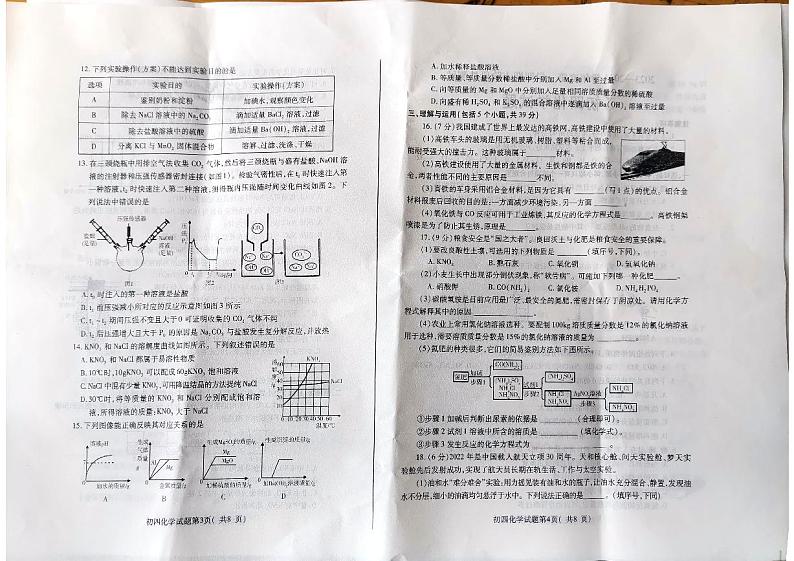 12. 下列实验操作(方案)不能达到实验目的的是
选项 实验目的 实验操作(方案)
A 鉴别奶粉和淀粉 加碘水,观察颜色变化
B 除去 NaCl 溶液中的 Na₂CO₃ 滴加适量 BaCl₂ 溶液,过滤
C 除去盐酸溶液中的硫酸 滴加适量 Ba(OH)₂ 溶液,过滤
D 分离 KCl 与 MnO₂ 固体混合物 溶解、过滤、洗涤、干燥
13. 在三颈烧瓶中用排空气法收集 CO₂ 气体,然后将三颈烧瓶与盛有盐酸、NaOH 溶
液的注射器和压强传感器密封连接(如图1)。检验气密性后,在 t₁ 时快速注入第
一种溶液,t₂ 时快速注入第二种溶液,测得瓶内压强随时间变化曲线如图 2。下
列说法中错误的是
压强传感器
盐酸
(足量)
NaOH
溶液
(足量)
图1
图2
A. t₁ 时注入的第一种溶液是盐酸
B. t₂ 前压强减小所对应的反应示意图如图 3 所示
C. t₁ ~ t₂ 期间压强不变且大于0 可证明吸收的 CO₂ 气体不纯
D. t₂ 后压强增大且大于 P₀ 的原因是 Na₂CO₃ 与盐酸发生复分解反应,并放热
14. KNO₃ 和 NaCl 的溶解度曲线如图所示。下列叙述错误的是
A. KNO₃ 和 NaCl 都属于易溶性物质
B. 10℃时,10gKNO₃ 可以配成 60gKNO₃ 饱和溶液
C. NaCl 中混有少量 KNO₃,可用降温结晶的方法提纯 NaCl
D. 30℃时,将等质量的 KNO₃ 和 NaCl 分别配成饱和溶
液,所得溶液的质量:KNO₃ 大于 NaCl
KNO₃
NaCl
0 10 20 30 40 50 60
温度/℃
15. 下列图像能正确反映其对应关系的是
溶液pH
7
加水的质量/g
A
Al
Mg
金属质量/g
B
生成MgSO₄的质量/g
Mg
MgO
加稀硫酸的质量/g
C
生成沉淀的质量/g
加Ba(OH)₂溶液质量/g
D
初四化学试题第3页( 共8 页)
A. 加水稀释盐酸溶液
B. 等质量、等质量分数稀盐酸中分别加入 Mg 和 Al 至过量
C. 向等质量的 Mg 和 MgO 中分别加入足量相同溶质质量分数的稀硫酸
D. 向盛有稀 H₂SO₄ 和 K₂SO₄ 的混合溶液中逐滴加入 Ba(OH)₂ 溶液至过量
三、理解与运用(包括 5 个小题,共 39 分)
16. (7 分)我国建成了世界上最发达的高铁网,高铁建设中使用了大量的材料。
(1)高铁车头的玻璃是用无机玻璃、树脂、塑料等粘合而成,
能耐受强大的撞击力。这种玻璃属于______材料。
(2)高铁建设使用了大量的金属材料。生铁和钢都是铁的合
金,两者性能不同的主要原因是______不同。
(3)高铁的车身采用铝合金材料,是因为它具有______(写1点)的优点。铝合金
材料报废后回收的目的是:一方面减少环境污染,另一方面______。
(4)氧化铁与 CO 反应可用于工业炼铁,其反应的化学方程式是______。高铁钢架
喷漆是为了防止其生锈,原理是______。
17. (9 分)粮食安全是“国之大者”。良田沃土与化肥是粮食安全的重要保障。
(1)要改良酸性土壤,可选用的下列物质是______。
A. KNO₃ B. 熟石灰 C. 氧化钙 D. 氢氧化钠
(2)小麦生长中出现部分倒伏现象,称“软劳病”,可施加下列哪一种化肥______。
A. 硝酸钾 B. CO(NH₂)₂ C. 氯化铵 D. NH₄H₂PO₄
(3)碳酸氢铵是目前应用最广泛、最安全的氮肥,需密封保存于阴凉处。请用化学方
程式解释其中的原因______。
(4)农业上常用氯化钠溶液选种。要配制 100kg 溶质质量分数是 12% 的氯化钠溶液
用于选种,需要溶质质量分数是 15% 的氯化钠溶液的质量为______。
(5)氮肥的种类很多,它们的简易鉴别方法如下图所示。
氮肥
加碱
步骤1
CO(NH₂)₂
(NH₄)₂SO₄
NH₄Cl
NH₄NO₃
试剂1
步骤2
(NH₄)₂SO₄
NH₄Cl
NH₄NO₃
AgNO₃溶液
步骤3
NH₄Cl
NH₄NO₃
①步骤 1 加碱后判断出尿素的依据是______(合理即可)。
②步骤 2 试剂 1 溶液中所含的溶质是______(填化学式)。
③步骤 3 发生反应的化学方程式为______。
18. (6 分)2022 年是中国载人航天立项 30 周年。天和核心舱、问天实验舱、梦天实
验舱先后发射成功,实现了航天员长期在轨生活、工作与太空实验。
(1)油和水“难分难舍”实验:用力摇晃装有油和水的瓶子,让油水充分混合。静置,发现油
水不分层,细小的油滴均匀悬浮于水中。下列说法正确的是______。(填序号,下同)
初四化学试题第4页( 共8 页)